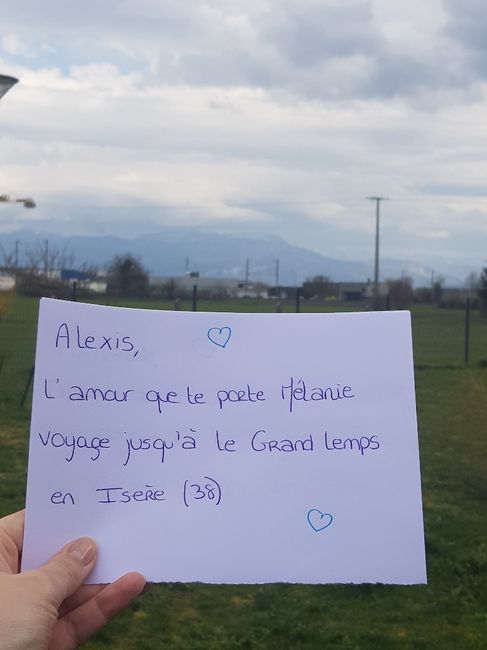 Alexis,
L'amour que te porte Mélanie
voyage jusqu'à Le Grand Lemps
en Isère (38)